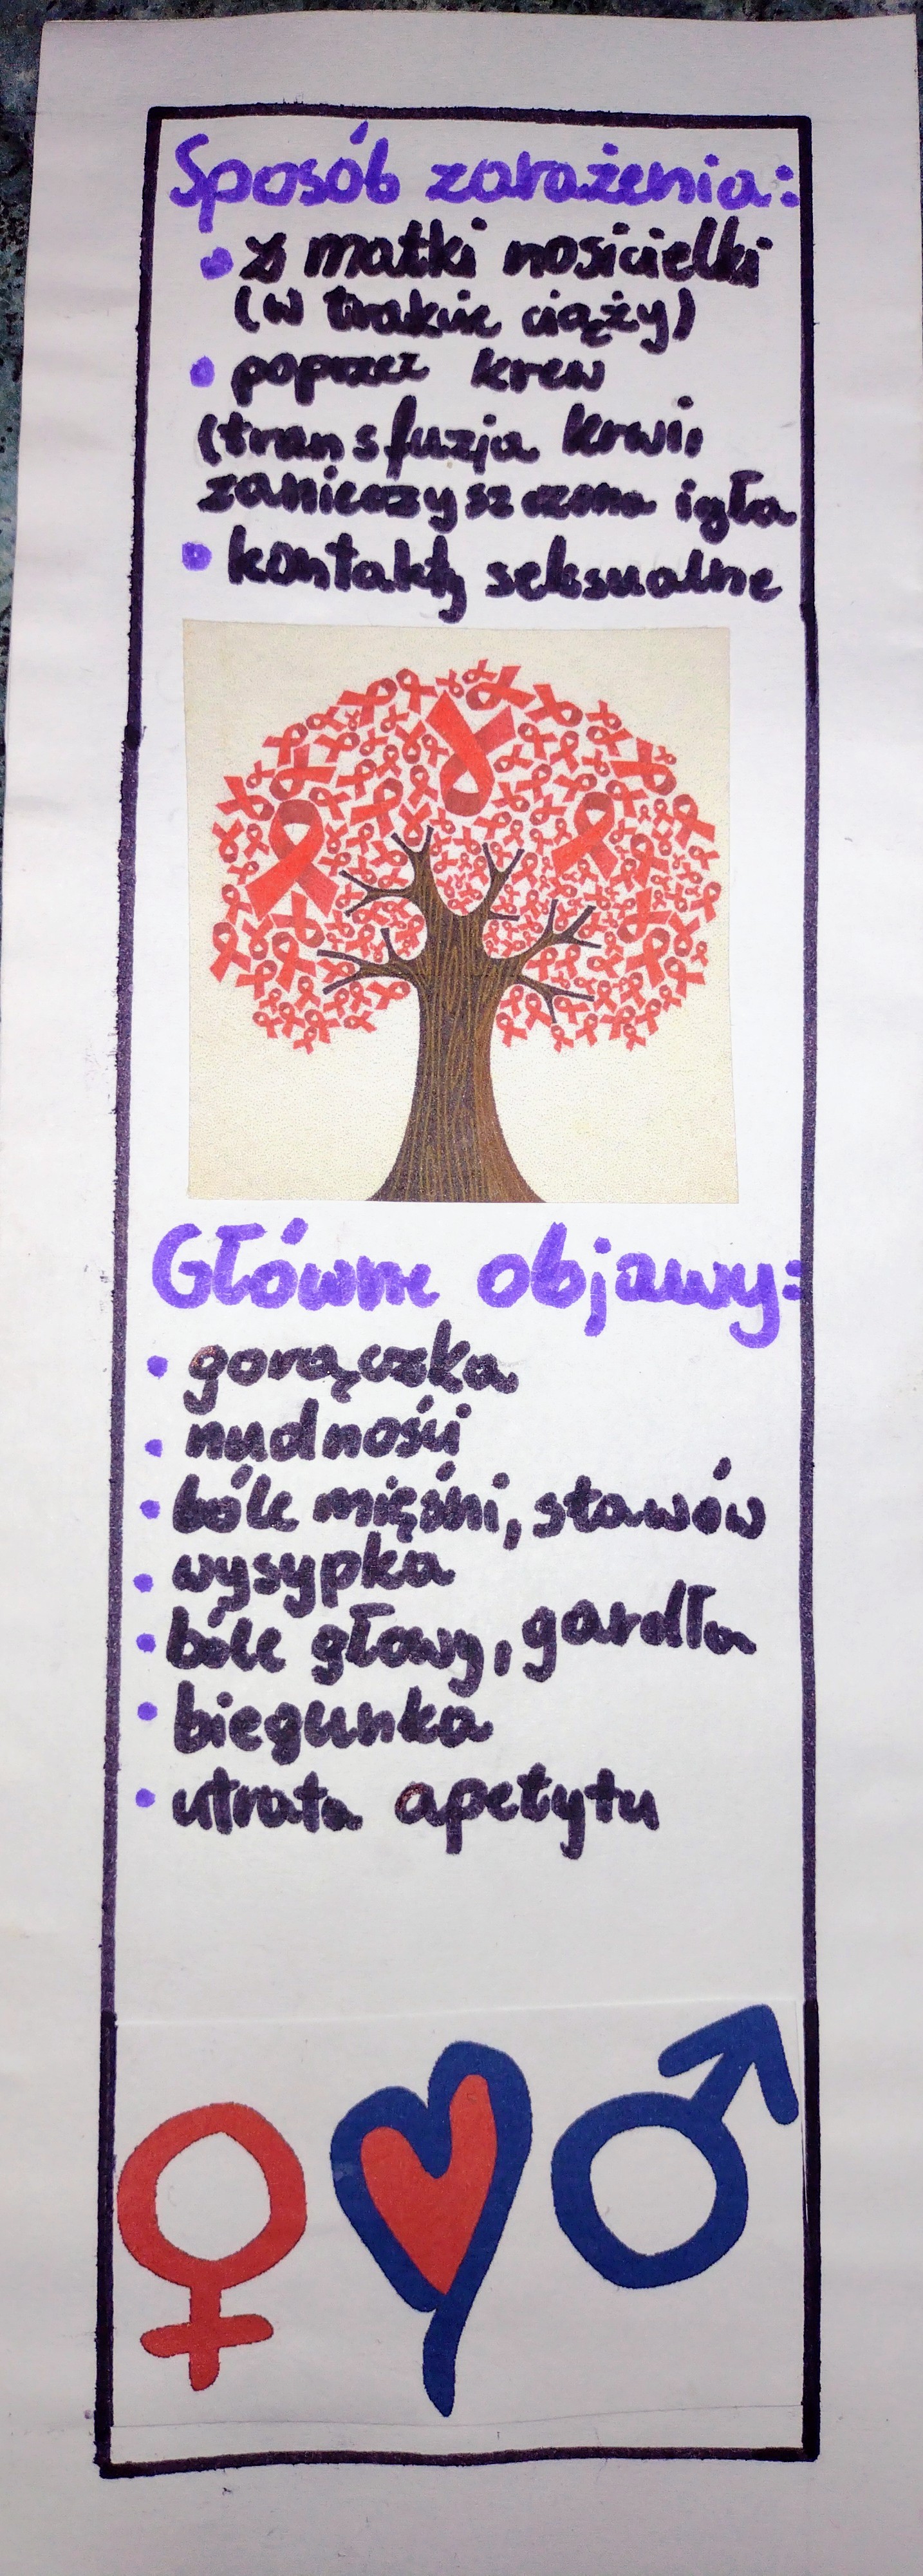 Sposób zarażenia:
z matki nosicielki
(w trakcie ciąży)
poprzez krew
(transfuzja krwi,
zanieczyszczona igła
kontakty seksualne
Główne objawy:
gorączka
nudności
bóle mięśni, stawów
wysypka
bóle głowy, gardła
biegunka
utrata apetytu